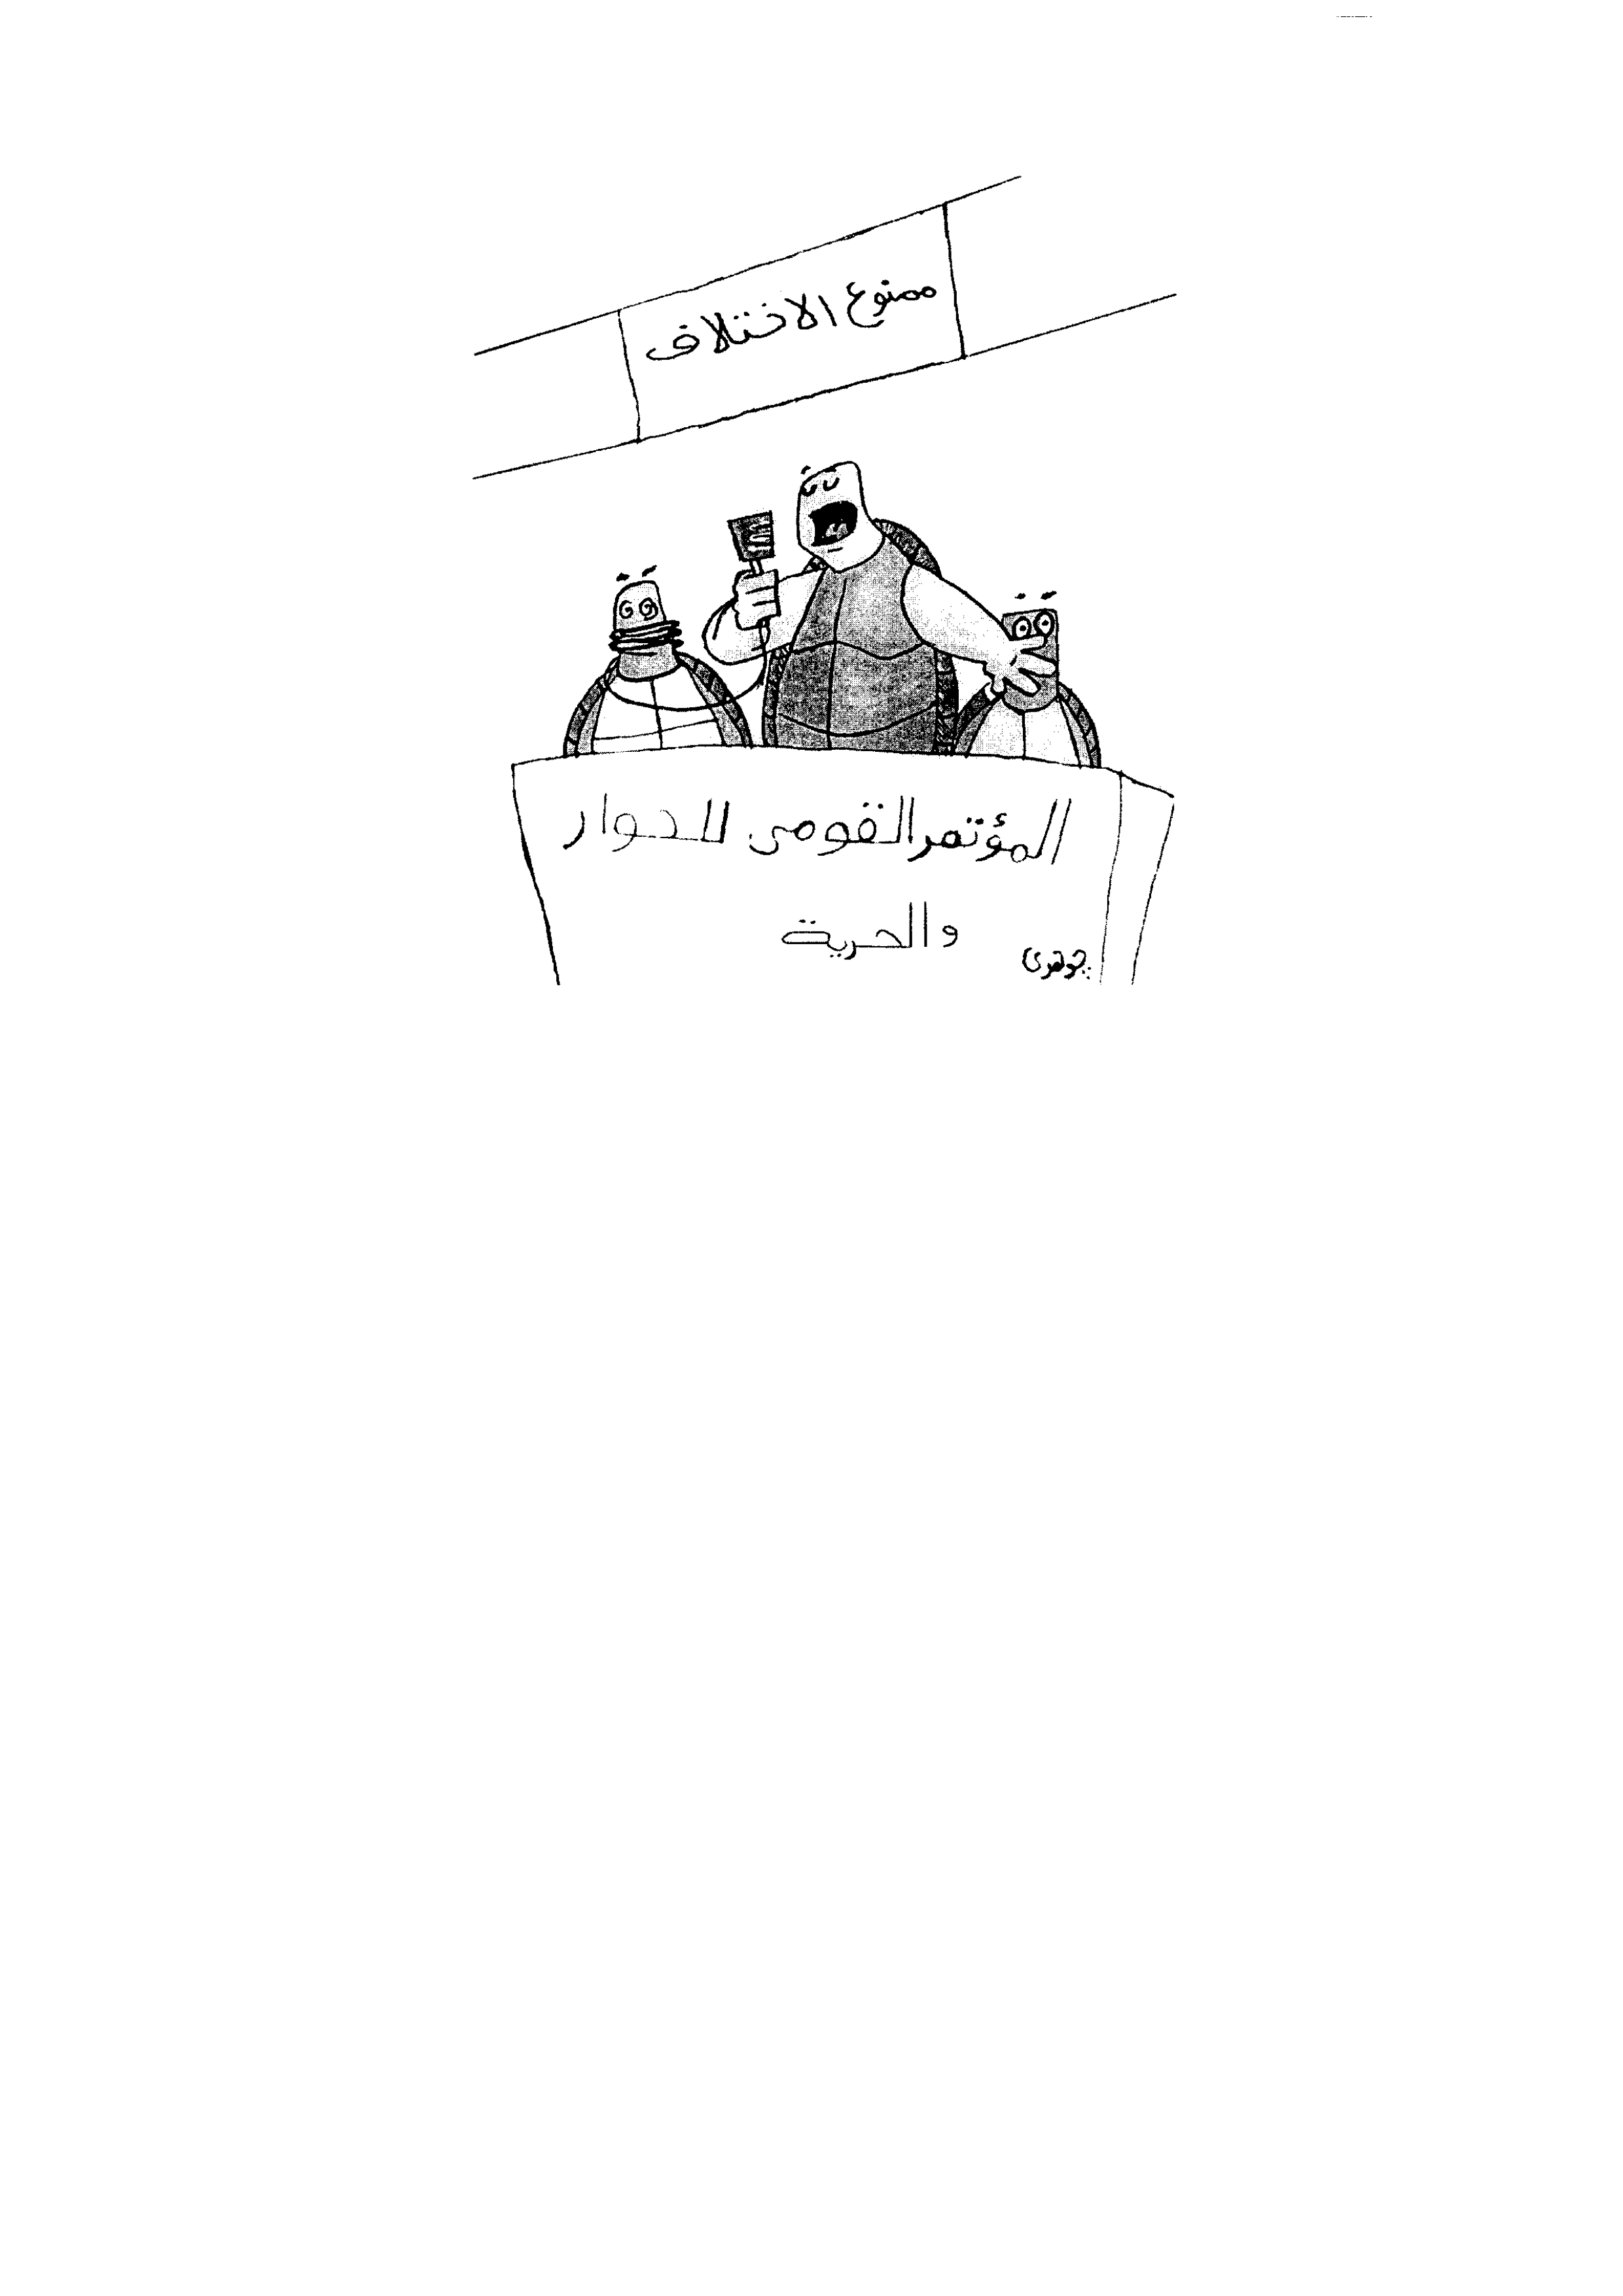 ممنوع الاختلاف
المؤتمر القومى للحوار
والحرية
جوهرى